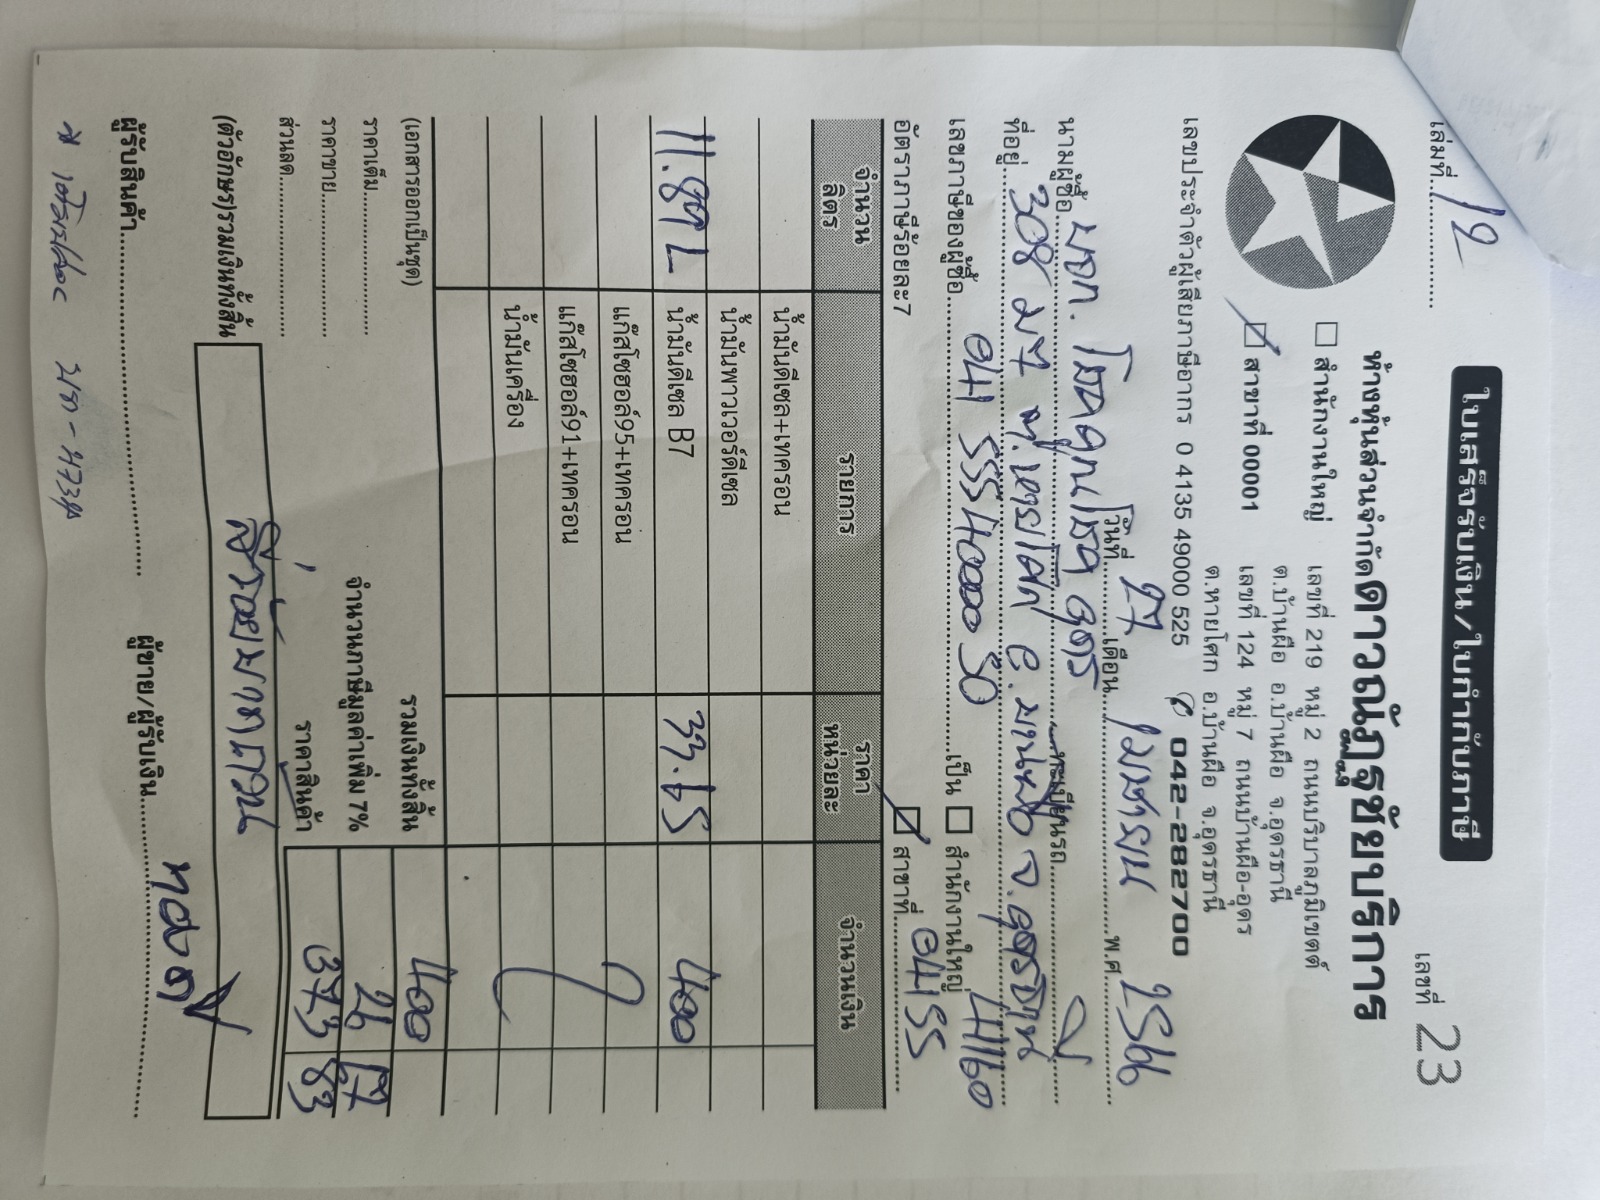 เล่มที่ 12
ใบเสร็จรับเงิน/ใบกำกับภาษี
เลขที่ 23
ห้างหุ้นส่วนจำกัดดาวณัฏฐชัยบริการ
สำนักงานใหญ่ เลขที่ 219 หมู่ 2 ถนนบริบาลภูมิเขตต์
ต.บ้านผือ อ.บ้านผือ จ.อุดรธานี
สาขาที่ 00001 เลขที่ 124 หมู่ 7 ถนนบ้านผือ-อุดร
ต.หายโศก อ.บ้านผือ จ.อุดรธานี
เลขประจำตัวผู้เสียภาษีอากร 0 4135 49000 525 042-282700
วันที่ 27 เดือน เมษายน พ.ศ. 2566
นามผู้ซื้อ บจก. โชคคูณโชค อุดร ทะเบียนรถ
ที่อยู่ 308 ม.7 จ.อุดรธานี 41160
เลขภาษีของผู้ซื้อ 041 555 40000 50 เป็น สำนักงานใหญ่
อัตราภาษีร้อยละ7 สาขาที่
จำนวน ลิตร รายการ ราคา หน่วยละ จำนวนเงิน
น้ำมันดีเซล+เทครอน
น้ำมันพาวเวอร์ดีเซล
11.89 L น้ำมันดีเซล B7 33.65 400
แก๊สโซฮอล์95+เทครอน
แก๊สโซฮอล์91+เทครอน
น้ำมันเครื่อง
(เอกสารออกเป็นชุด) รวมเงินทั้งสิ้น 400
ราคาเต็ม จำนวนภาษีมูลค่าเพิ่ม 7% 26 17
ราคาขาย ราคาสินค้า 373 83
ส่วนลด
(ตัวอักษร)รวมเงินทั้งสิ้น สี่ร้อยบาทถ้วน
ผู้รับสินค้า ผู้ขาย/ผู้รับเงิน